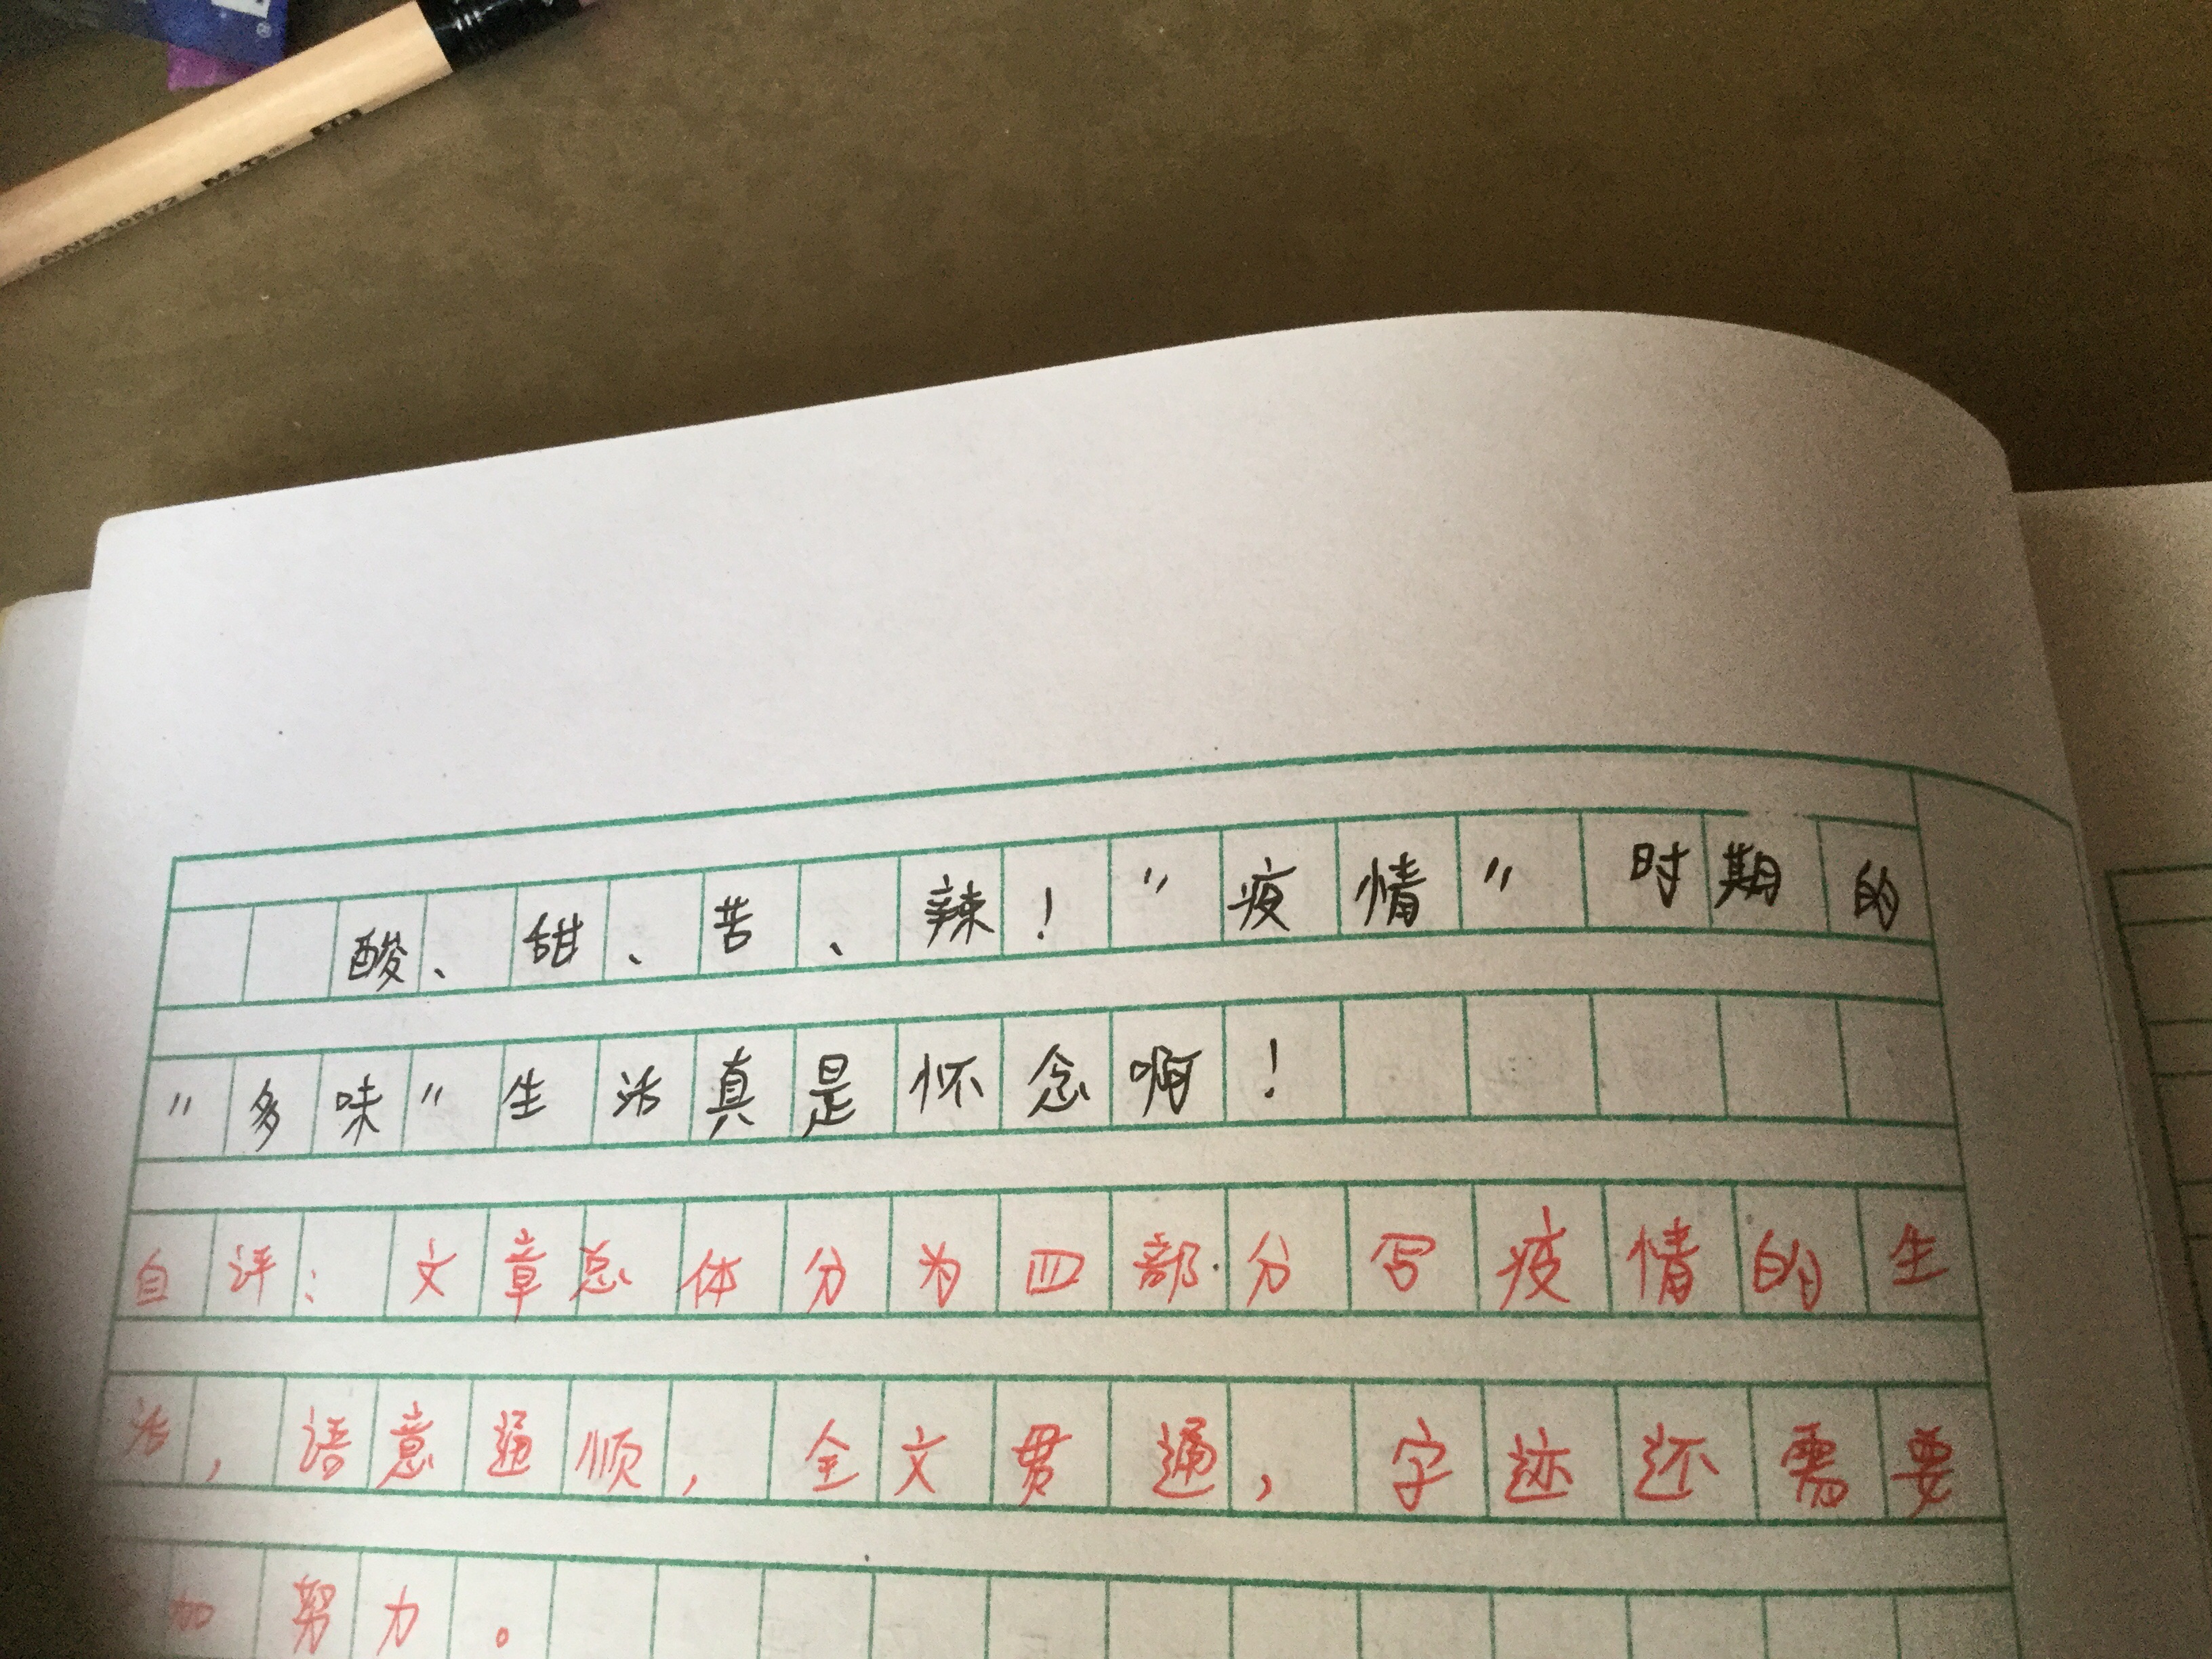 酸、甜、苦、辣！“疫情”时期的
“多味”生活真是怀念啊！
自评：文章总体分为四部分写疫情的生
活，语意通顺，全文贯通，字迹还需要
加努力。